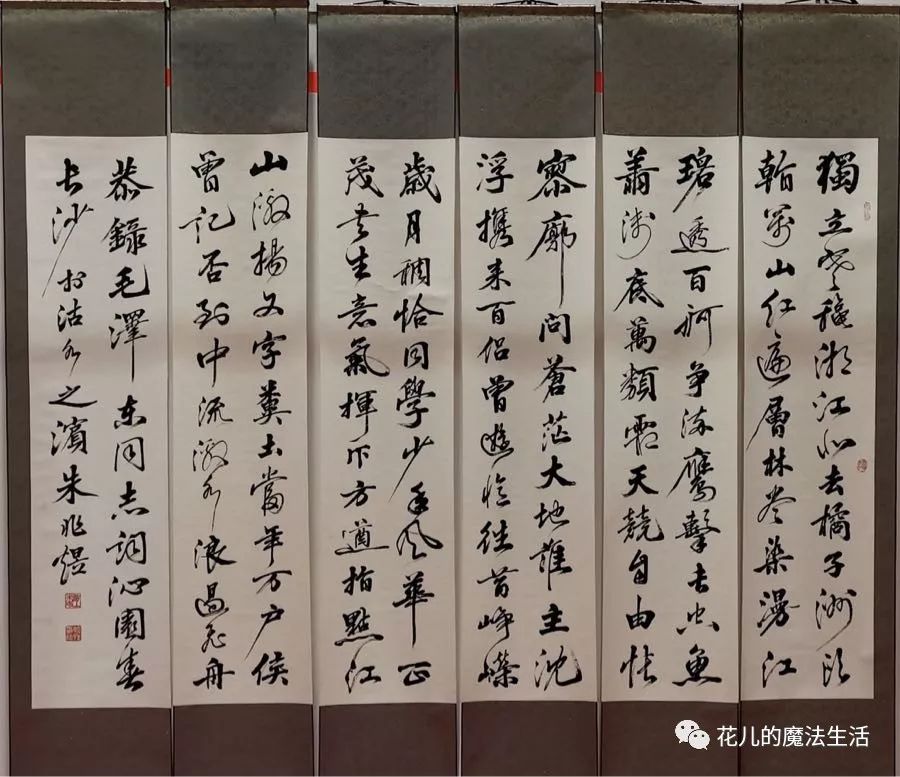 獨立寒穐湘江北去橘子洲頭
看萬山紅遍層林盡染漫江
碧透百舸争流鷹擊長空魚
翔淺底萬類霜天競自由悵
寥廓問蒼茫大地誰主沈
浮携来百侣曾遊憶往昔崢嶸
歲月稠恰同學少年風華正
茂書生意氣揮斥方遒指點江
山激揚文字糞土當年万户侯
曾記否到中流激水浪遏飛舟
恭錄毛澤東同志詞沁園春
長沙 於沽水之濱朱兆
花儿的魔法生活